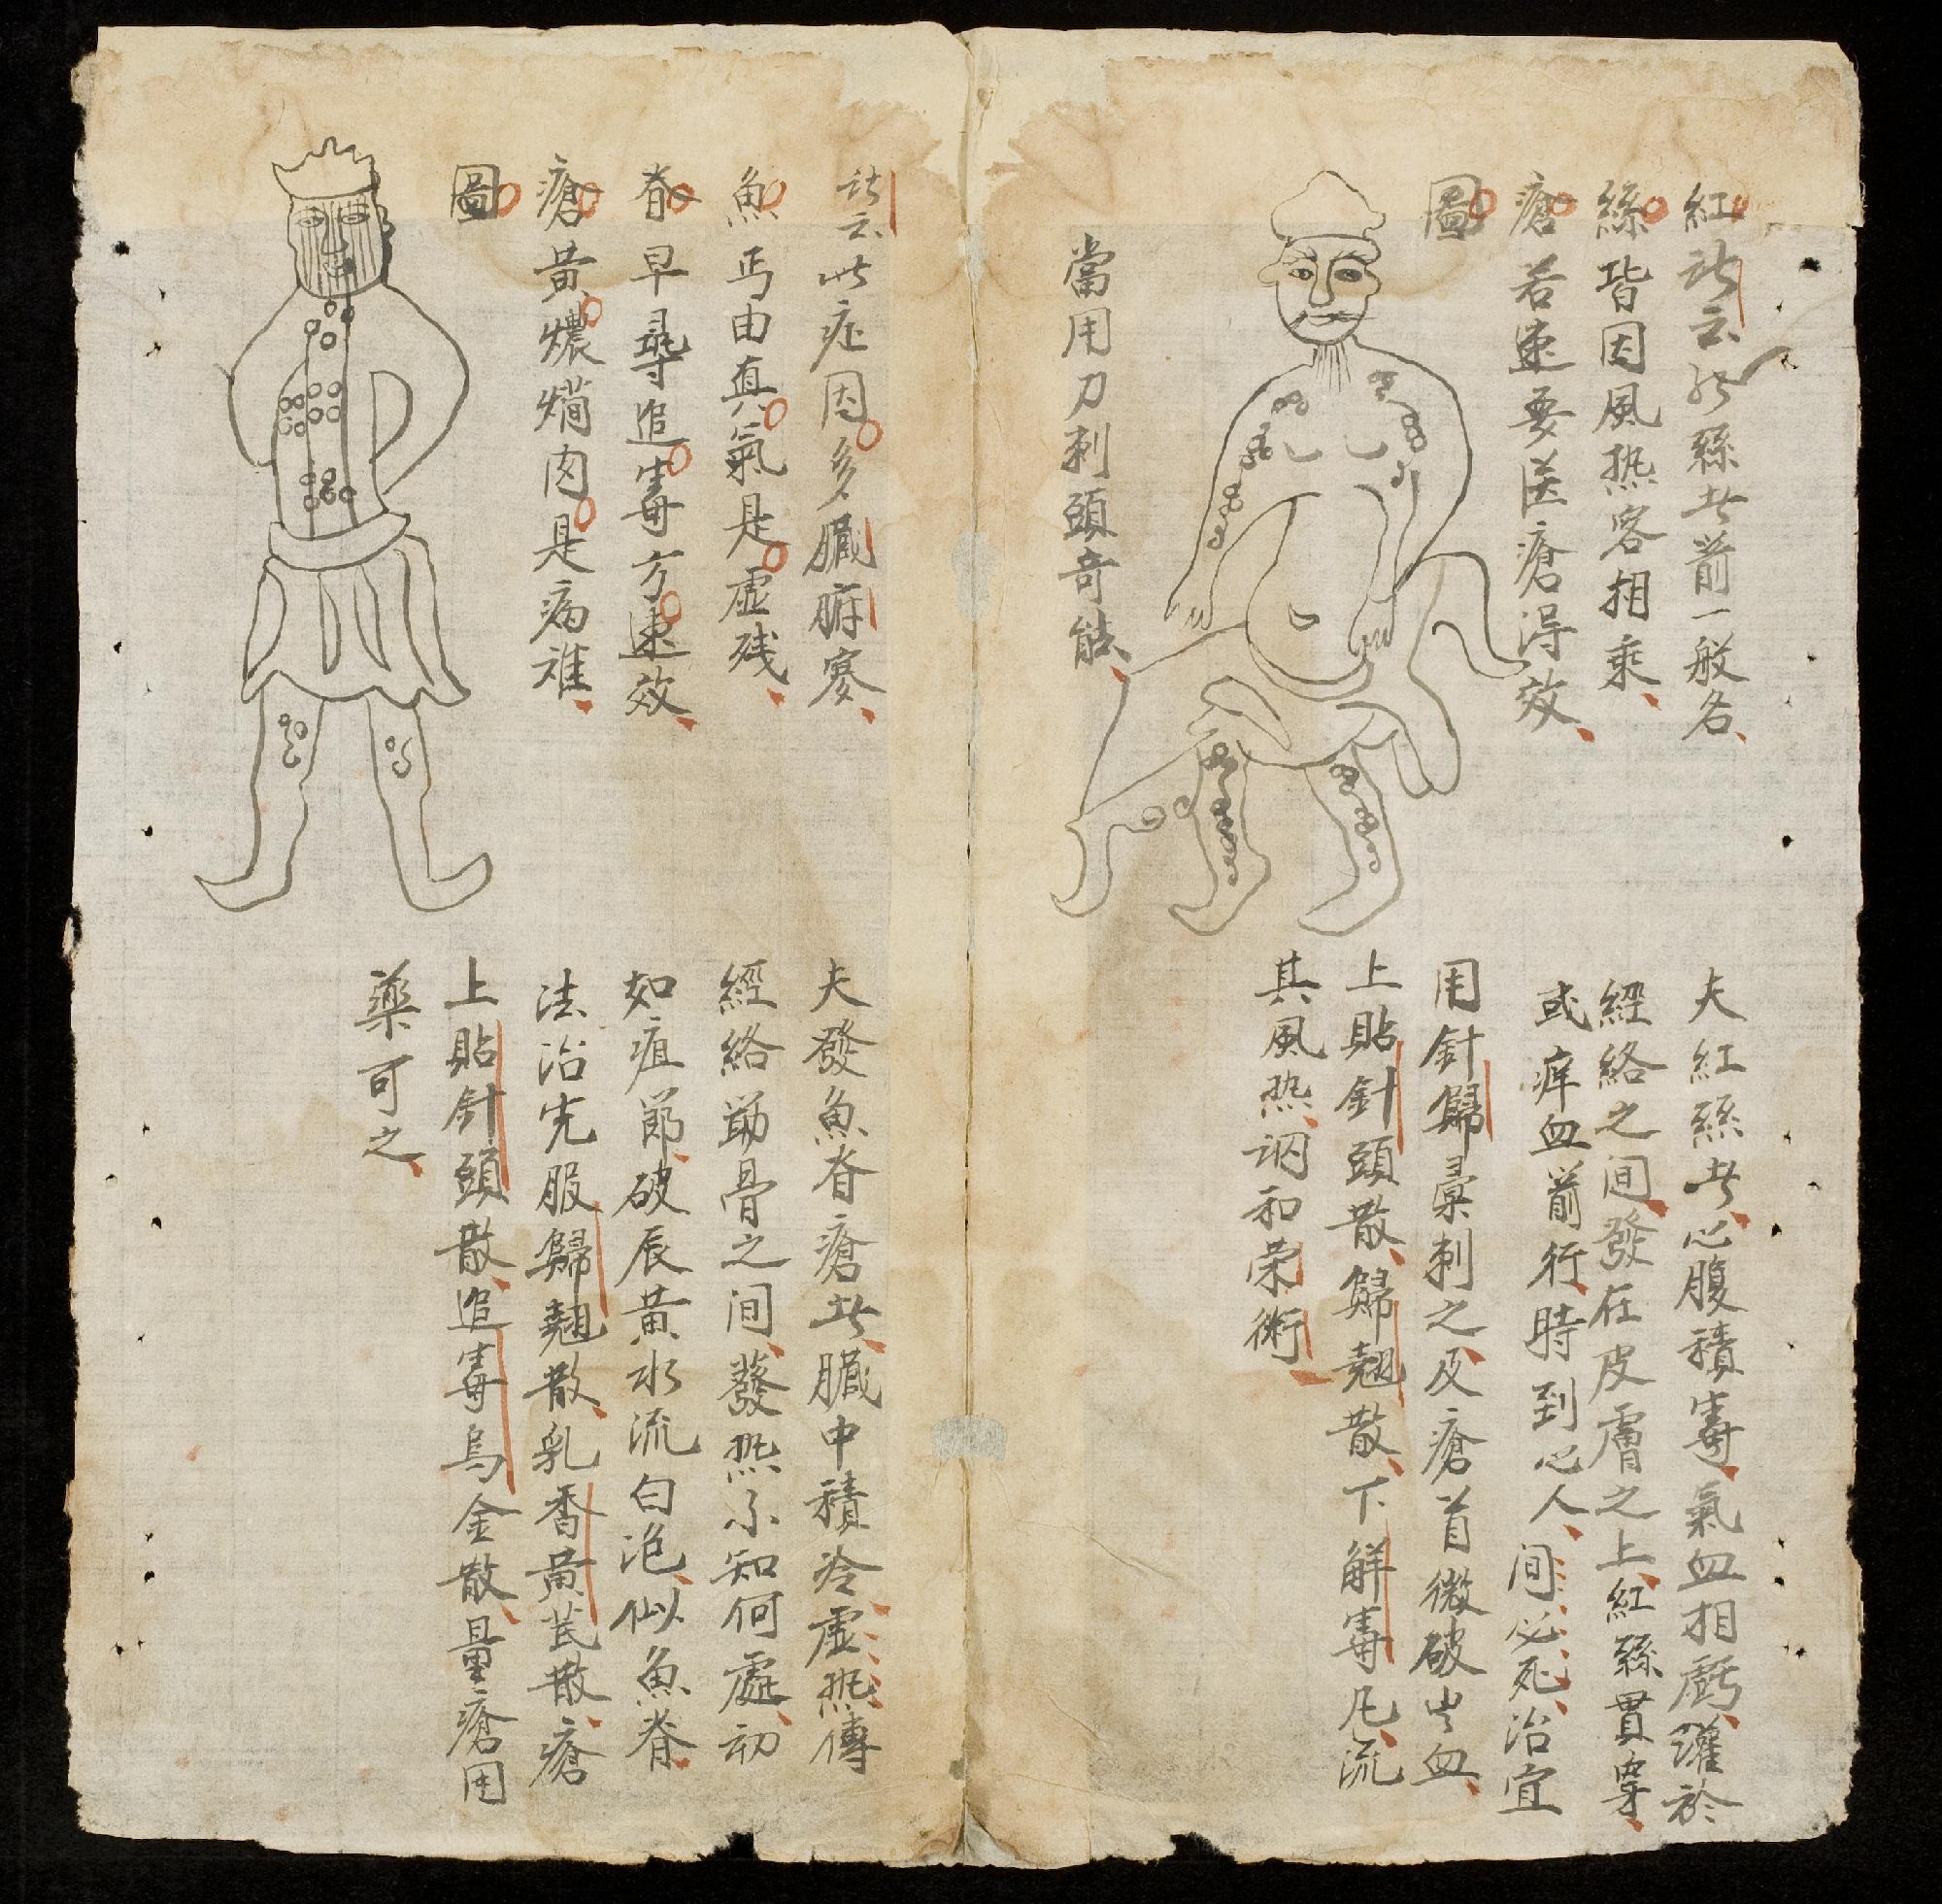 紅詩云形絲者前一般名
絲皆因風热客相乘
瘡若速要医瘡淂效
圖
當用刀刺頭奇能
夫紅絲者心腹積毒氣血相虧灌於
經絡之间發在皮膚之上紅絲貫穿
或痒血前行時到心人间必死治宜
用針歸槀刺之及瘡首微破出血
上貼針頭散歸翹散下解毒凡流
其風热調和荣術
詩云此症因多臟腑寒
魚丐由真氣是虛残
脊早尋追毒方速效
瘡黄爛肉是病难
圖
夫發魚脊瘡者臟中積冷虛热傳
經絡觔骨之间發热不知何處初
如疽節破辰黄水流白泡似魚脊
法治先服歸翹散乳香黄芪散瘡
上貼針頭散追毒烏金散量瘡用
藥可之